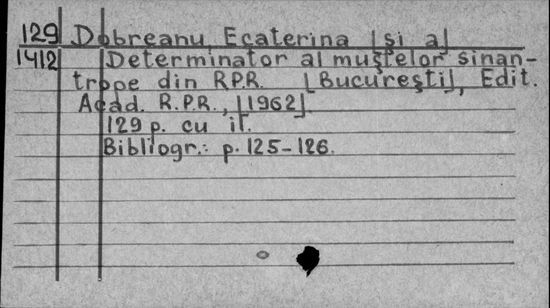 129 Dobreanu Ecaterina [și a]
1412 Determinator al muștelor sinan-
trope din R.P.R. [București], Edit.
Acad. R.P.R., [1962].
129 p. cu il.
Bibliogr.: p. 125-126.